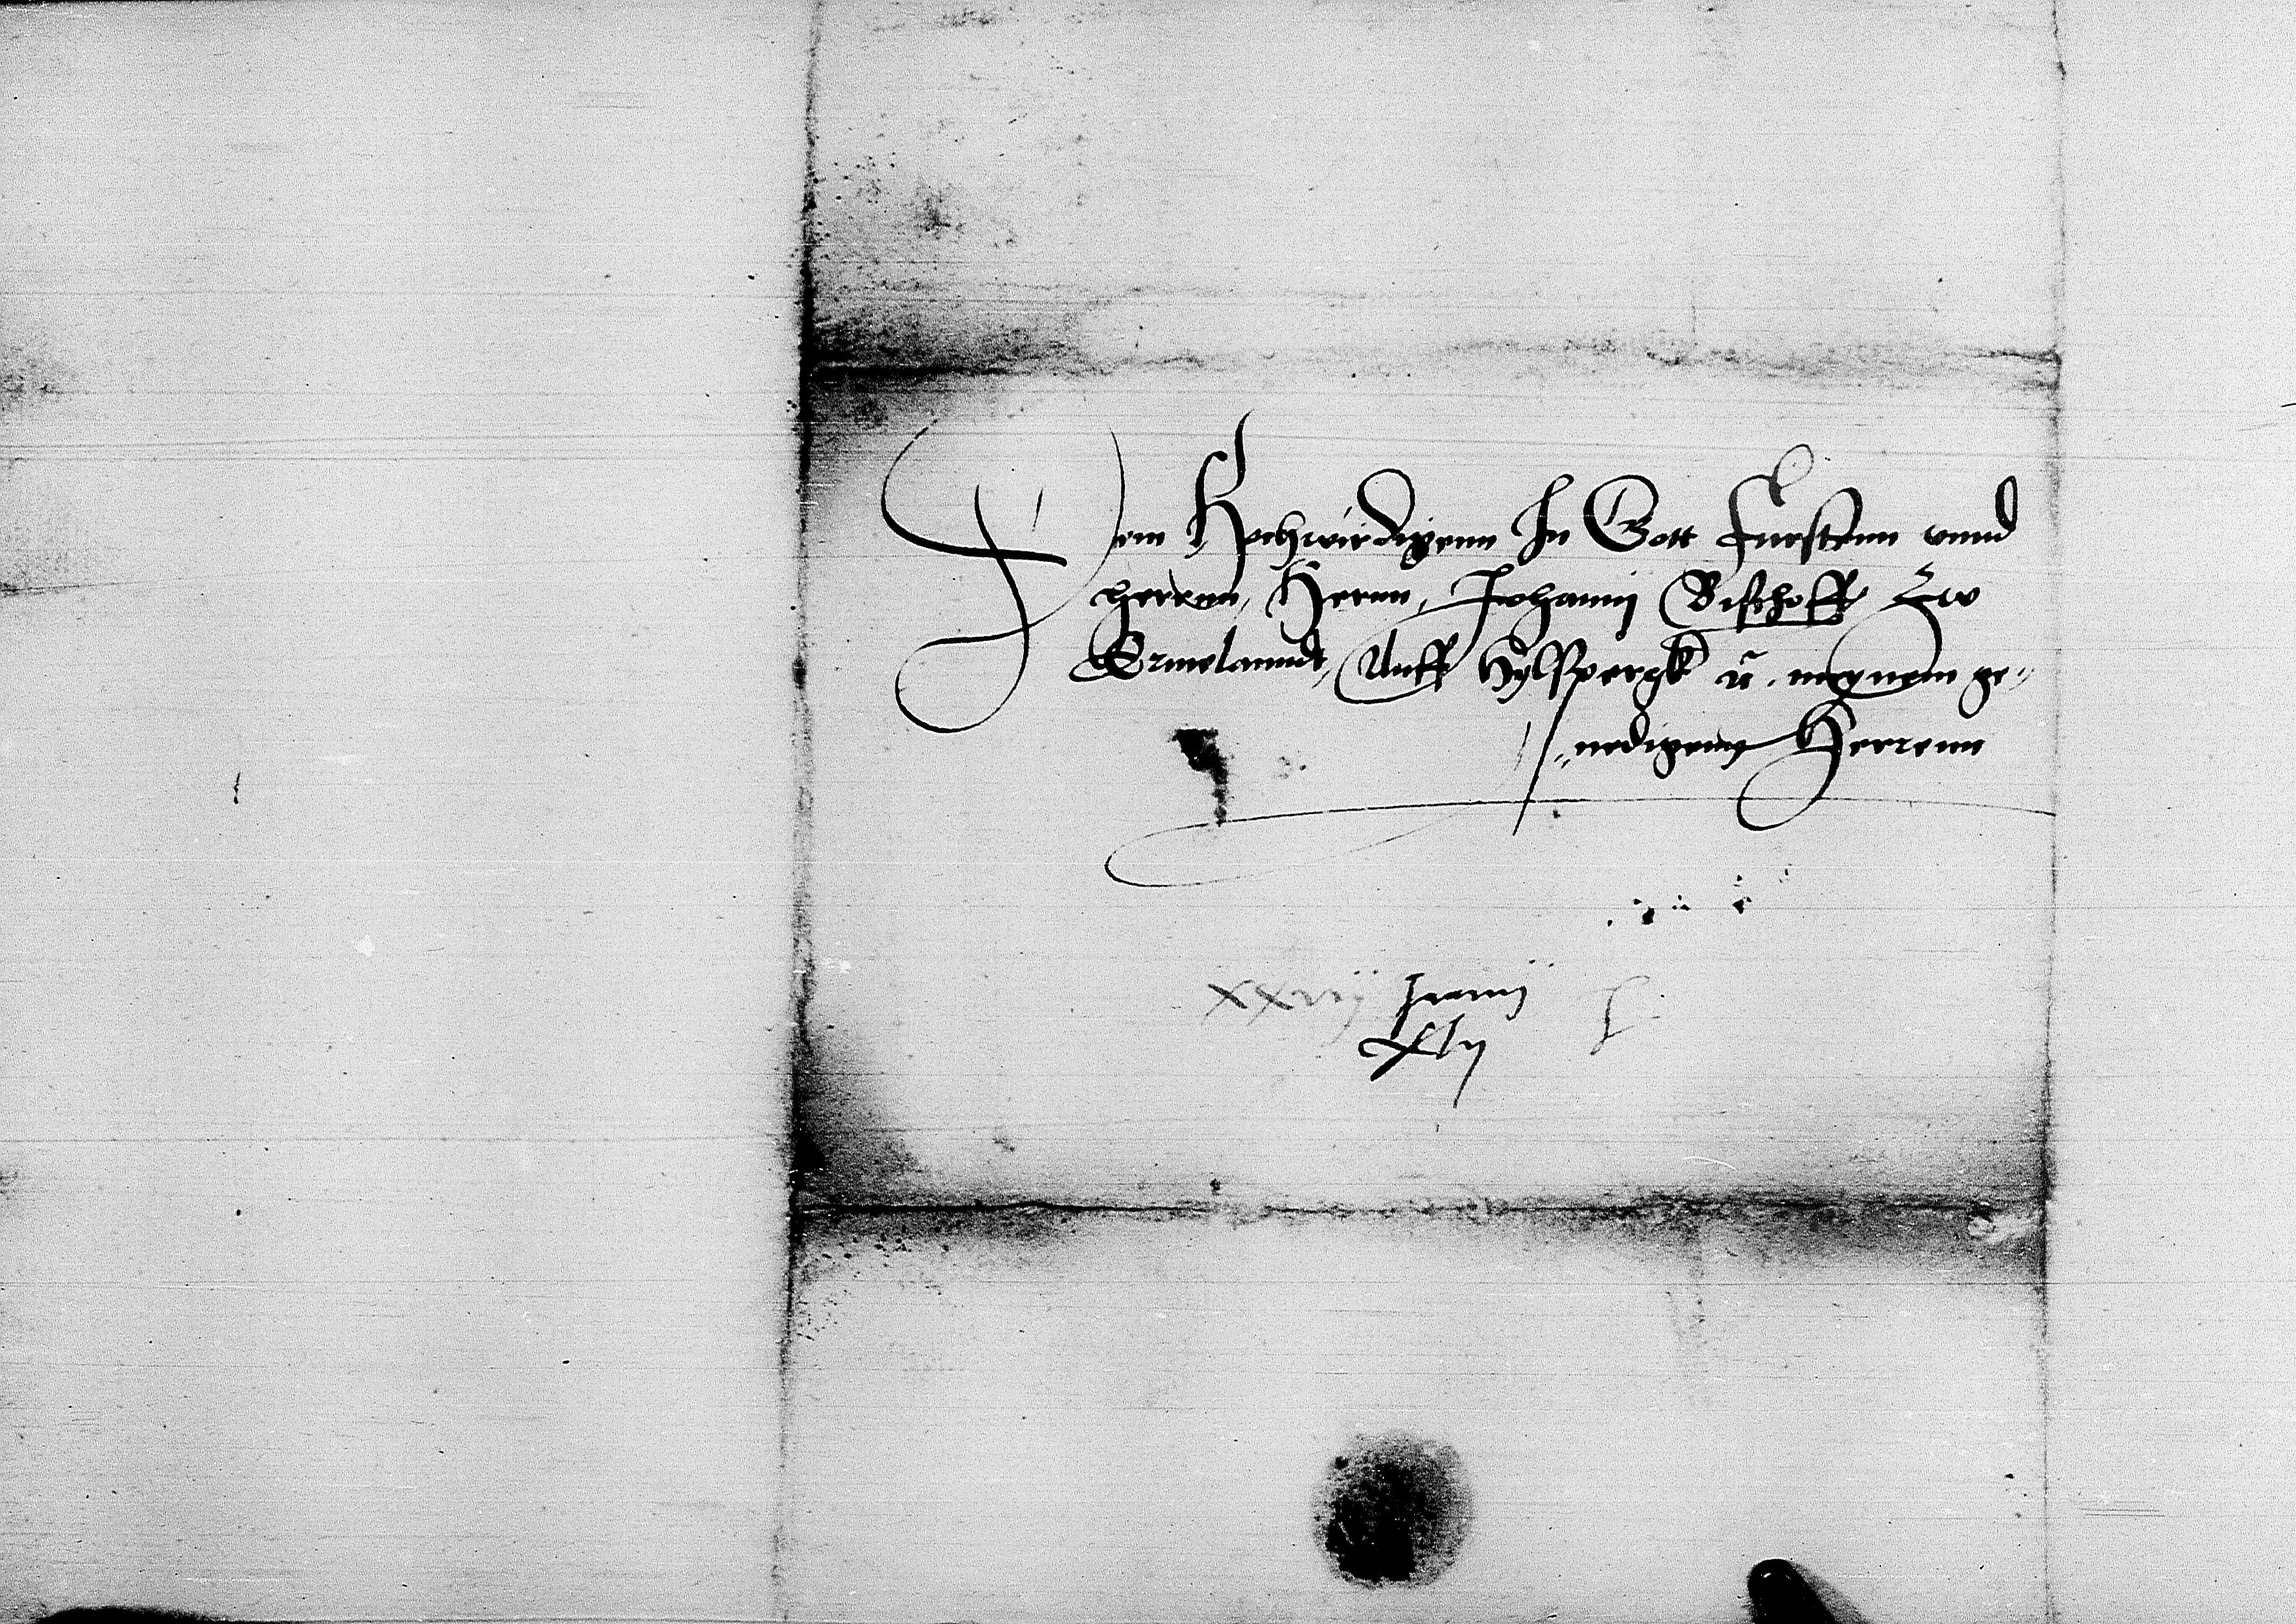 Dem Hochwirdigenn In Gott Furstenn vnnd
herrenn, Hernn, Johannj Bischoff Zw
Ermelanndt, Auff Hylspergk ü. meynem ge„
„nedigenn Herrenn
xxvij Junij
xlij